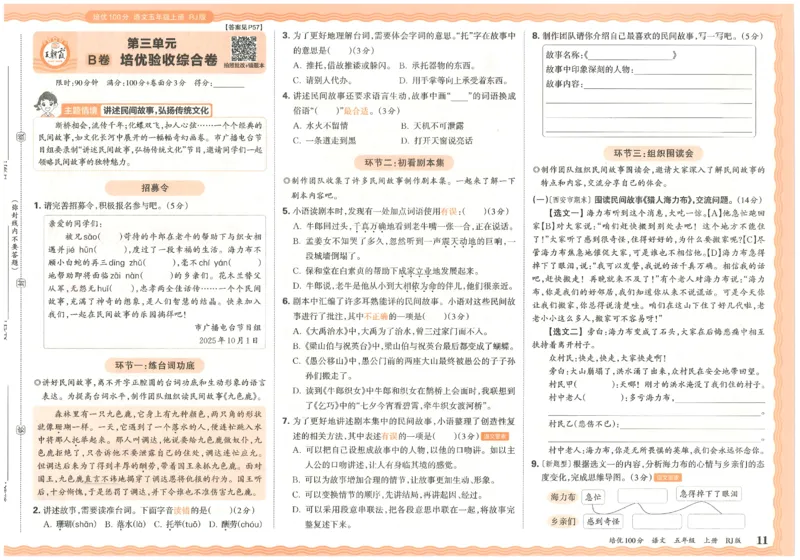 培优100分 语文五年级上册 RJ版
【答案见P57】
王朝霞
B卷
第三单元
培优验收综合卷
扫码批改+错题本
限时:90分钟 满分:100分+卷面分3分 得分:
主题情境 讲述民间故事,弘扬传统文化
断桥相会,流传千年;化蝶双飞,扣人心弦……一个个经典的
民间故事,如文化长河中展开的一幅幅奇幻画卷。市广播电台节
目组要录制“讲述民间故事,弘扬传统文化”节目,邀请同学们一起
领略民间故事的独特魅力。
招募令
1. 请完善招募令,积极报名参与吧。(5分)
亲爱的同学们:
被兄sǎo( )苛待的牛郎在老牛的帮助下与织女相
遇并jié hūn( ),度过了一段幸福的生活。海力布不
顾小白蛇的再三dīng zhǔ( ),毫不chí yán( )
地帮助即将面临zāi nàn( )的乡亲们。花木兰替父
从军,无怨无huǐ( ),忠孝两全佳话传……一个个民间
故事,充满了神奇的想象,是人们智慧的结晶。快来加入
我们,一起在民间故事的乐园徜徉吧!
市广播电台节目组
2025年10月1日
环节一:练台词功底
◎讲好民间故事,离不开字正腔圆的台词功底和生动形象的语言
表达。为提高台词水平,制作团队组织读民间故事《九色鹿》。
森林里有一只九色鹿,它身上有九种颜色,两只角的形状
就像珊瑚一样。一天,它遇到了一个落水的人,便迅速跳入水
中将那人托举起来。那人叫调达,他说要给九色鹿做奴仆,九
色鹿拒绝了,只告诉他不要泄露自己的住处,调达连忙应允。
但调达后来为了得到丰厚的酬劳,带着国王来抓九色鹿。面对
国王,九色鹿直言不讳地揭穿了调达恩将仇报的行为。国王听
后,十分惭愧,于是惩罚了调达,并下令谁也不准伤害九色鹿。
2. 讲述这段故事,需要读准台词。下面加点字读错的是( )(2分)
A. 珊瑚(shān) B. 落水(là) C. 托举(tuō) D. 酬劳(chóu)
3. 为了更好地理解台词,需要体会字词的意思。“托”字在故事中
的意思是( )(3分)
A. 推托,借故推诿或躲闪。 B. 承托器物的东西。
C. 请别人代办。 D. 用手掌等向上承受着东西。
4. 讲述民间故事还要求语言生动,故事中画“ ”的词语换成
俗语“( )”最合适。(3分)
A. 水火不留情 B. 天机不可泄露
C. 一条道走到黑 D. 打开天窗说亮话
环节二:初看剧本集
◎制作团队收集了许多民间故事制作剧本集。一起来了解一下
剧本内容吧。
5. 小语读剧本时,发现有一处加点词语使用有误:( )(3分)
A. 牛郎回过头,千真万确地看到老牛嘴一张一合,正在说话。
B. 孟姜女不知哭了多久,忽然听到一声震天动地的巨响,一
段城墙倒塌了。
C. 保和堂在白素贞的帮助下成家立业地发展起来。
D. 牛郎说,老牛是他从小到大相依为命的伴儿,他们很亲近。
6. 剧本中汇编了许多耳熟能详的民间故事。小语对这些民间故
事进行了批注,其中不正确的一项是( )(3分)
A.《大禹治水》中,大禹为了治水,曾三过家门而不入。
B.《梁山伯与祝英台》中,梁山伯与祝英台最后都变成了蝴蝶。
C.《愚公移山》中,愚公门前的两座大山最终被愚公的子子孙
孙们搬走了。
D. 读到《牛郎织女》中牛郎和织女在鹊桥上会面时,我联想到
了《乞巧》中的“七夕今宵看碧霄,牵牛织女渡河桥”。
7. 为了更好地讲述剧本集中的民间故事,小语整理了创造性复
述的相关方法,其中表述有误的一项是( )(3分) 语文要素
A. 可以把自己设想成故事中的人物,以他的口吻讲。如以主
人公的口吻讲述,让人有身临其境的感觉。
B. 可以为故事增加合理的情节,让故事更加生动、形象。
C. 可以变换情节的顺序,先讲结局,再讲起因、经过。
D. 可以采用段意串联法,把各段段意思串联在一起,将故事完
整复述下来。
8. 制作团队请你介绍自己最喜欢的民间故事,写一写吧。(5分)
故事名称:《 》
故事中印象深刻的人物:
故事内容:
环节三:组织围读会
◎制作团队组织民间故事围读会,邀请大家深入了解民间故事的
特点和内容,交流分享自己的体会。
(一)[西安市期末] 围读民间故事《猎人海力布》,交流问题。(14分)
【选文一】海力布听到这个消息,大吃一惊。【A】他急忙跑回
家【B】对大家说:“咱们赶快搬到别处去吧!这个地方不能住
了!”大家听了感到很奇怪,住得好好的,为什么要搬家呢?【C】尽
管海力布焦急地催促大家,可是谁也不相信他。【D】海力布急得
掉下了眼泪,说:“我可以发誓,我说的话千真万确。相信我的话
吧,赶快搬走!再晚就来不及了!”有个老人对海力布说:“海力
布,你是我们的好邻居,我们知道你从来不说谎话。可是今天你
让我们搬家,你总得说清楚哇。咱们在这山下住了好几代啦,老
老小小这么多人,搬家可不容易呀!”
【选文二】旁白:海力布变成了石头,大家在后悔悲痛中相互
扶持着离开村子。
众村民:快走,快走,大家快走啊!
旁白:大山崩塌了,洪水涌了出来,众村民在安全地带回望。
村民甲( ):天哪!刚才的洪水淹没了我们住的村子。
村中老人( ):多亏海力布,
。
村民乙(悲伤不已):
。
村中老人:海力布,你是无所畏惧的英雄,我们会永远怀念你。
9.〔新题型〕根据选文一的内容,分析海力布的心情与乡亲们的态
度变化,完成思维导图。(3分) 语文要素
海力布 急忙 急得掉下了眼泪
乡亲们 感到奇怪
(弥封线内不要答题)
培优100分 语文 五年级 上册 RJ版 11